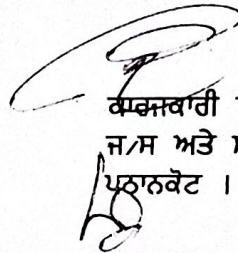 ਕਾਰਜਕਾਰੀ
ਜ/ਸ ਅਤੇ
ਪਠਾਨਕੋਟ ।